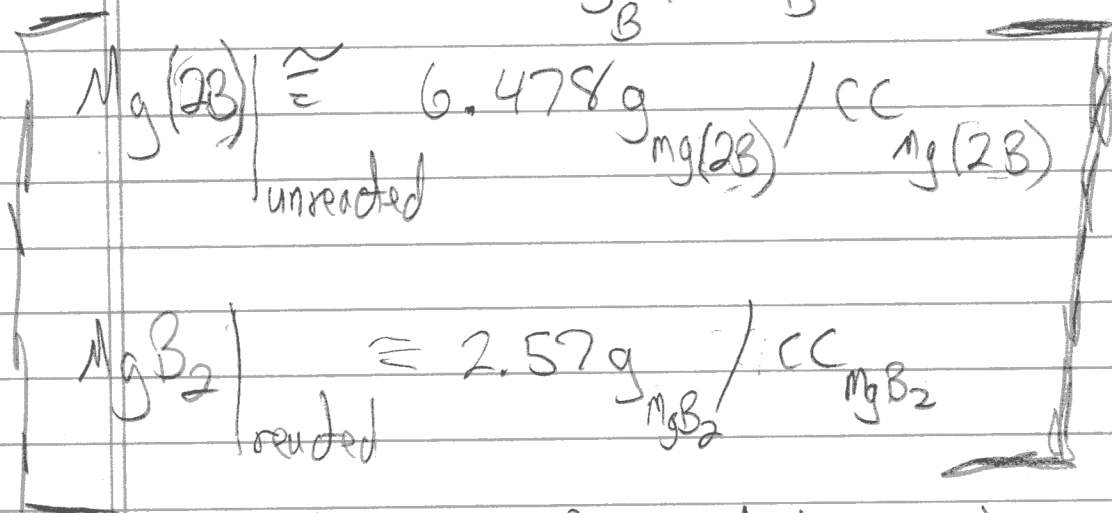 B
Mg(2B)|unreacted ≅ 6.478g Mg(2B) / cc Mg(2B)
MgB₂|reacted ≅ 2.57g MgB₂ / cc MgB₂